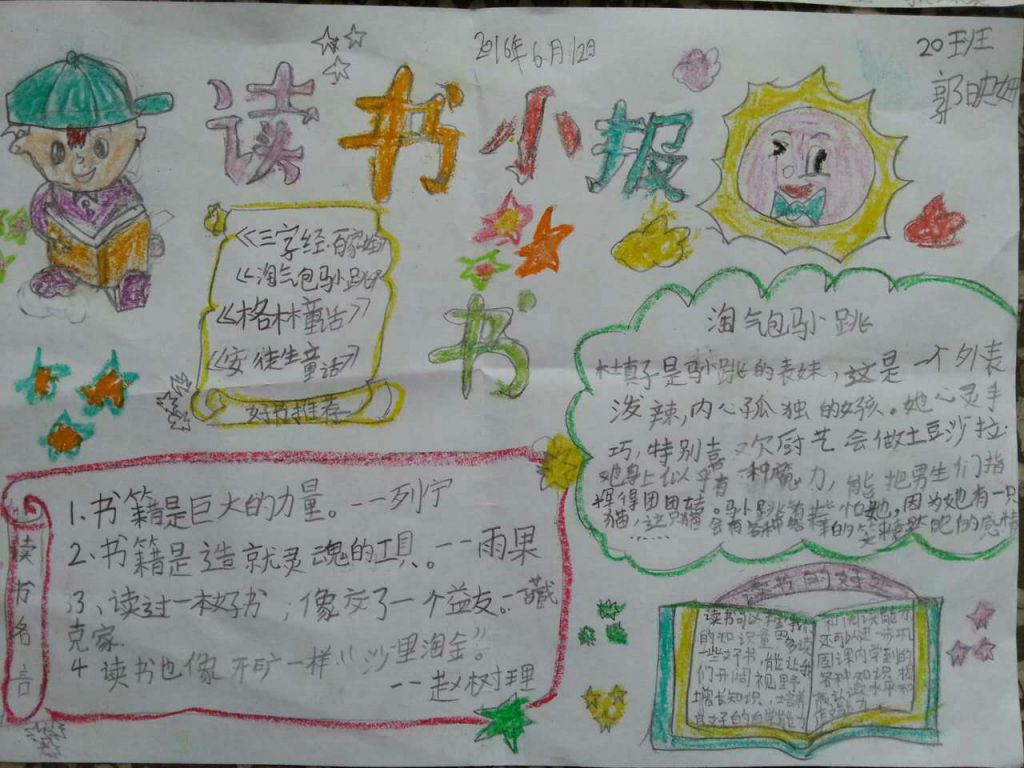 2016年6月12日
20班
郭映姗
读书小报
《三字经.百家姓
《淘气包马小跳
《格林童话》
《安徒生童话》
好书推荐
书
淘气包马小跳
杜真子是马小跳的表妹,这是一个外表
泼辣,内心孤独的女孩。她心灵手
巧,特别喜欢厨艺会做土豆沙拉.
她身上似乎有一种魔力,能把男生们指
挥得团团转。马小跳有些怕她。因为她有一只
猫,这只猫会有各种各样的笑
读书名言
1.书籍是巨大的力量。——列宁
2、书籍是造就灵魂的工具。——雨果
3、读过一本好书,像交了一个益友。—臧
克家
4 读书也像开矿一样"沙里淘金"。
——赵树理
读书的好处
读书可以
的知识量
一些好书,能让我
们开阔视野
增长知识,培养
良好的自学能力
和阅读能力
还可以进一步巩
固课内学到的